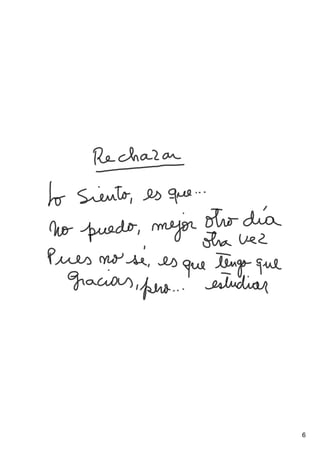 Rechazar
Lo siento, es que...
no puedo, mejor otro día
otra vez
Pues no sé, es que tengo que
gracias, pero... estudiar
6